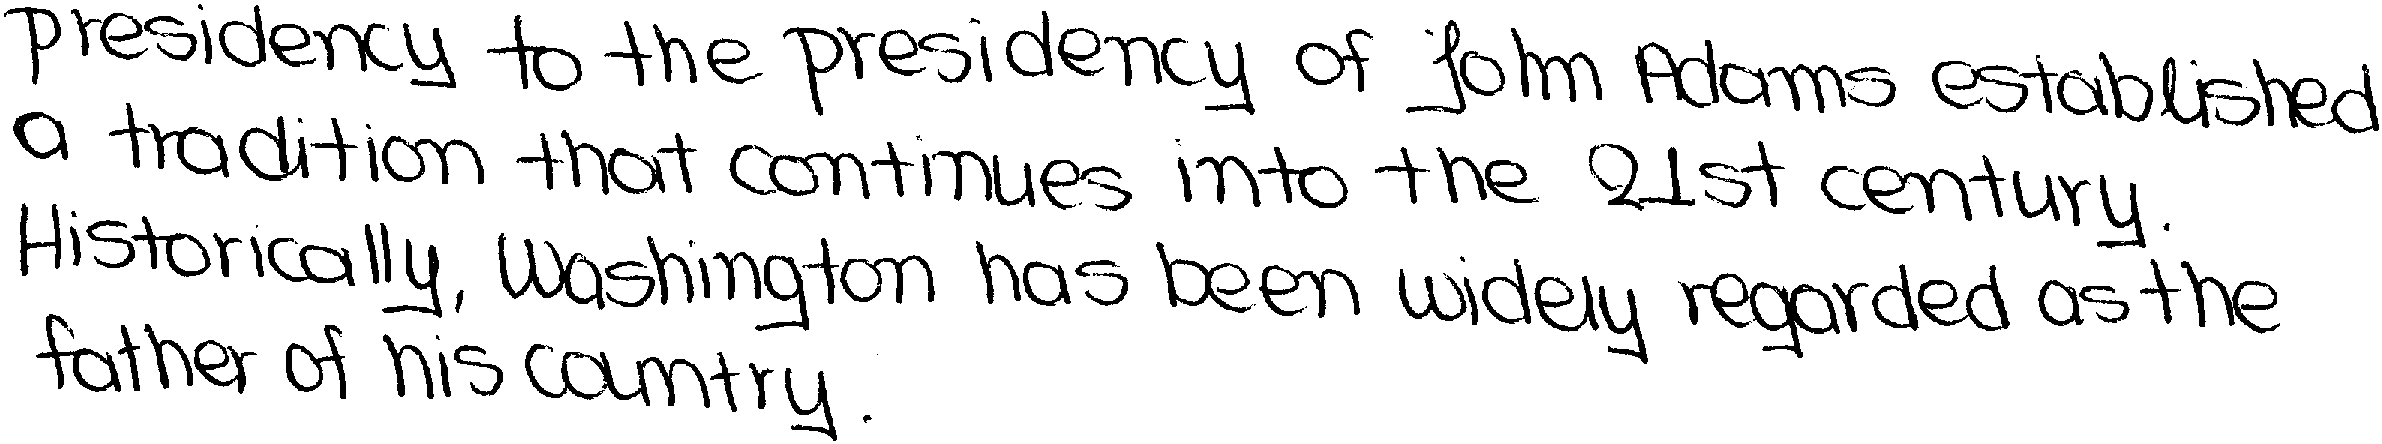 presidency to the presidency of John Adams established
a tradition that continues into the 21st century.
Historically, Washington has been widely regarded as the
father of his country.